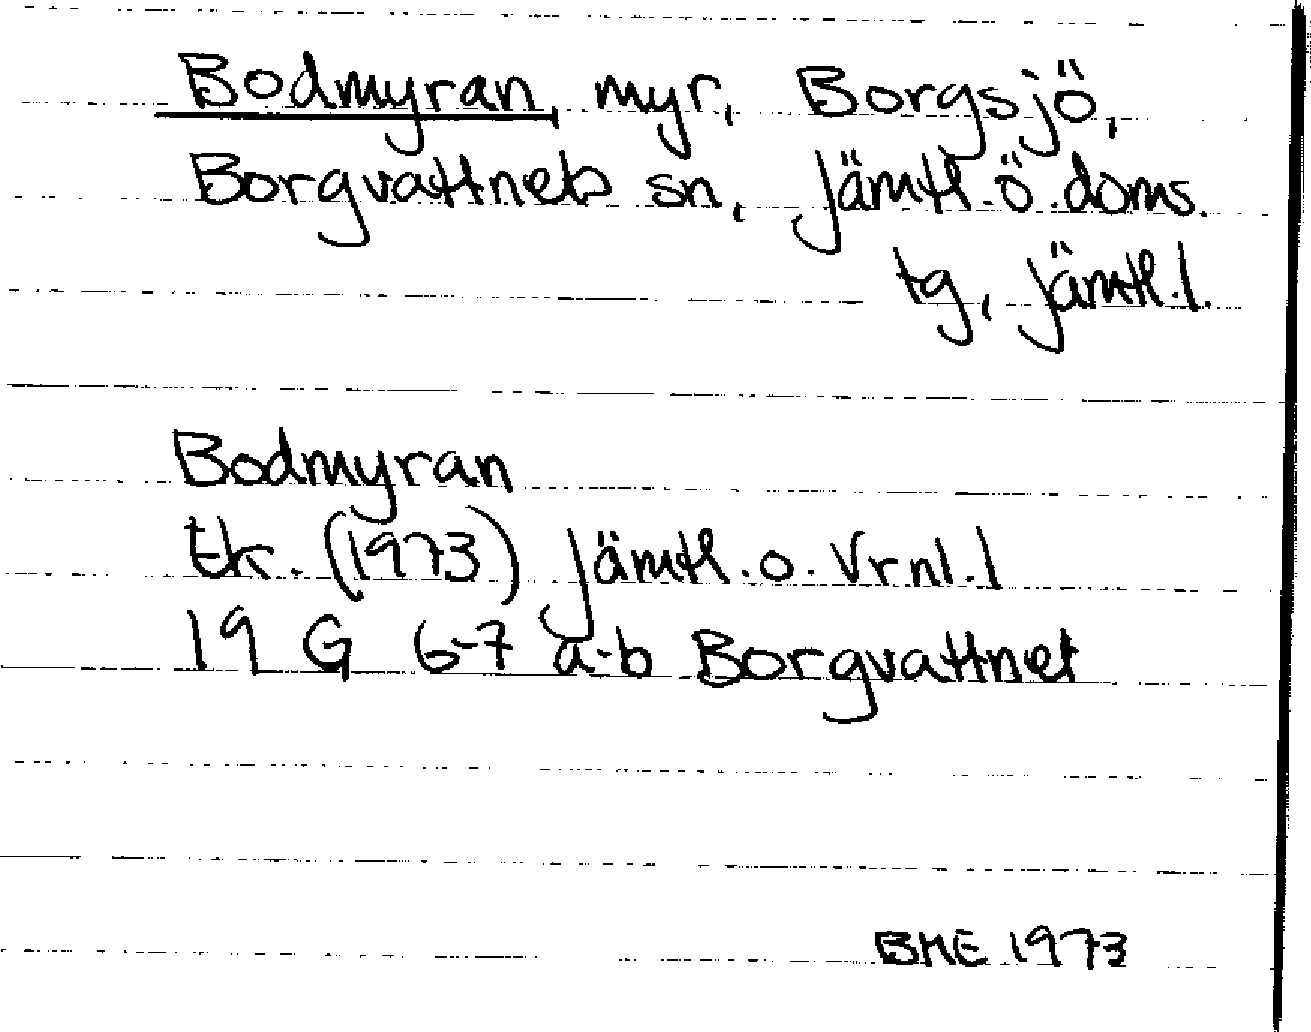 Bodmyran, myr, Borgsjö,
Borgvattnets sn, Jämtl. ö. doms.
tg, Jämtl. l.
Bodmyran
tk. (1973) Jämtl. o. Vrnl. l
19 G 6-7 a-b Borgvattnet
BME 1973